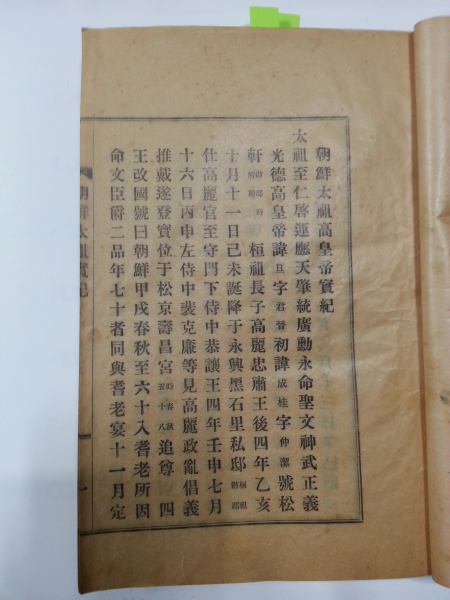 朝鮮太祖高皇帝實紀
太祖至仁啓運應天肇統廣勳永命聖文神武正義
光德高皇帝諱旦字君晉初諱成桂字仲潔號松
軒潛邸時桓祖長子高麗忠肅王後四年乙亥
十月十一日己未誕降于永興黑石里私邸桓祖
仕高麗官至守門下侍中恭讓王四年壬申七月
十六日丙申左侍中裴克廉等見高麗政亂倡義
推戴遂登寶位于松京壽昌宮時春秋五十八追尊四
王改國號曰朝鮮甲戌春秋至六十入耆老所因
命文臣爵二品年七十者同與耆老宴十一月定
朝鮮太祖實紀
一